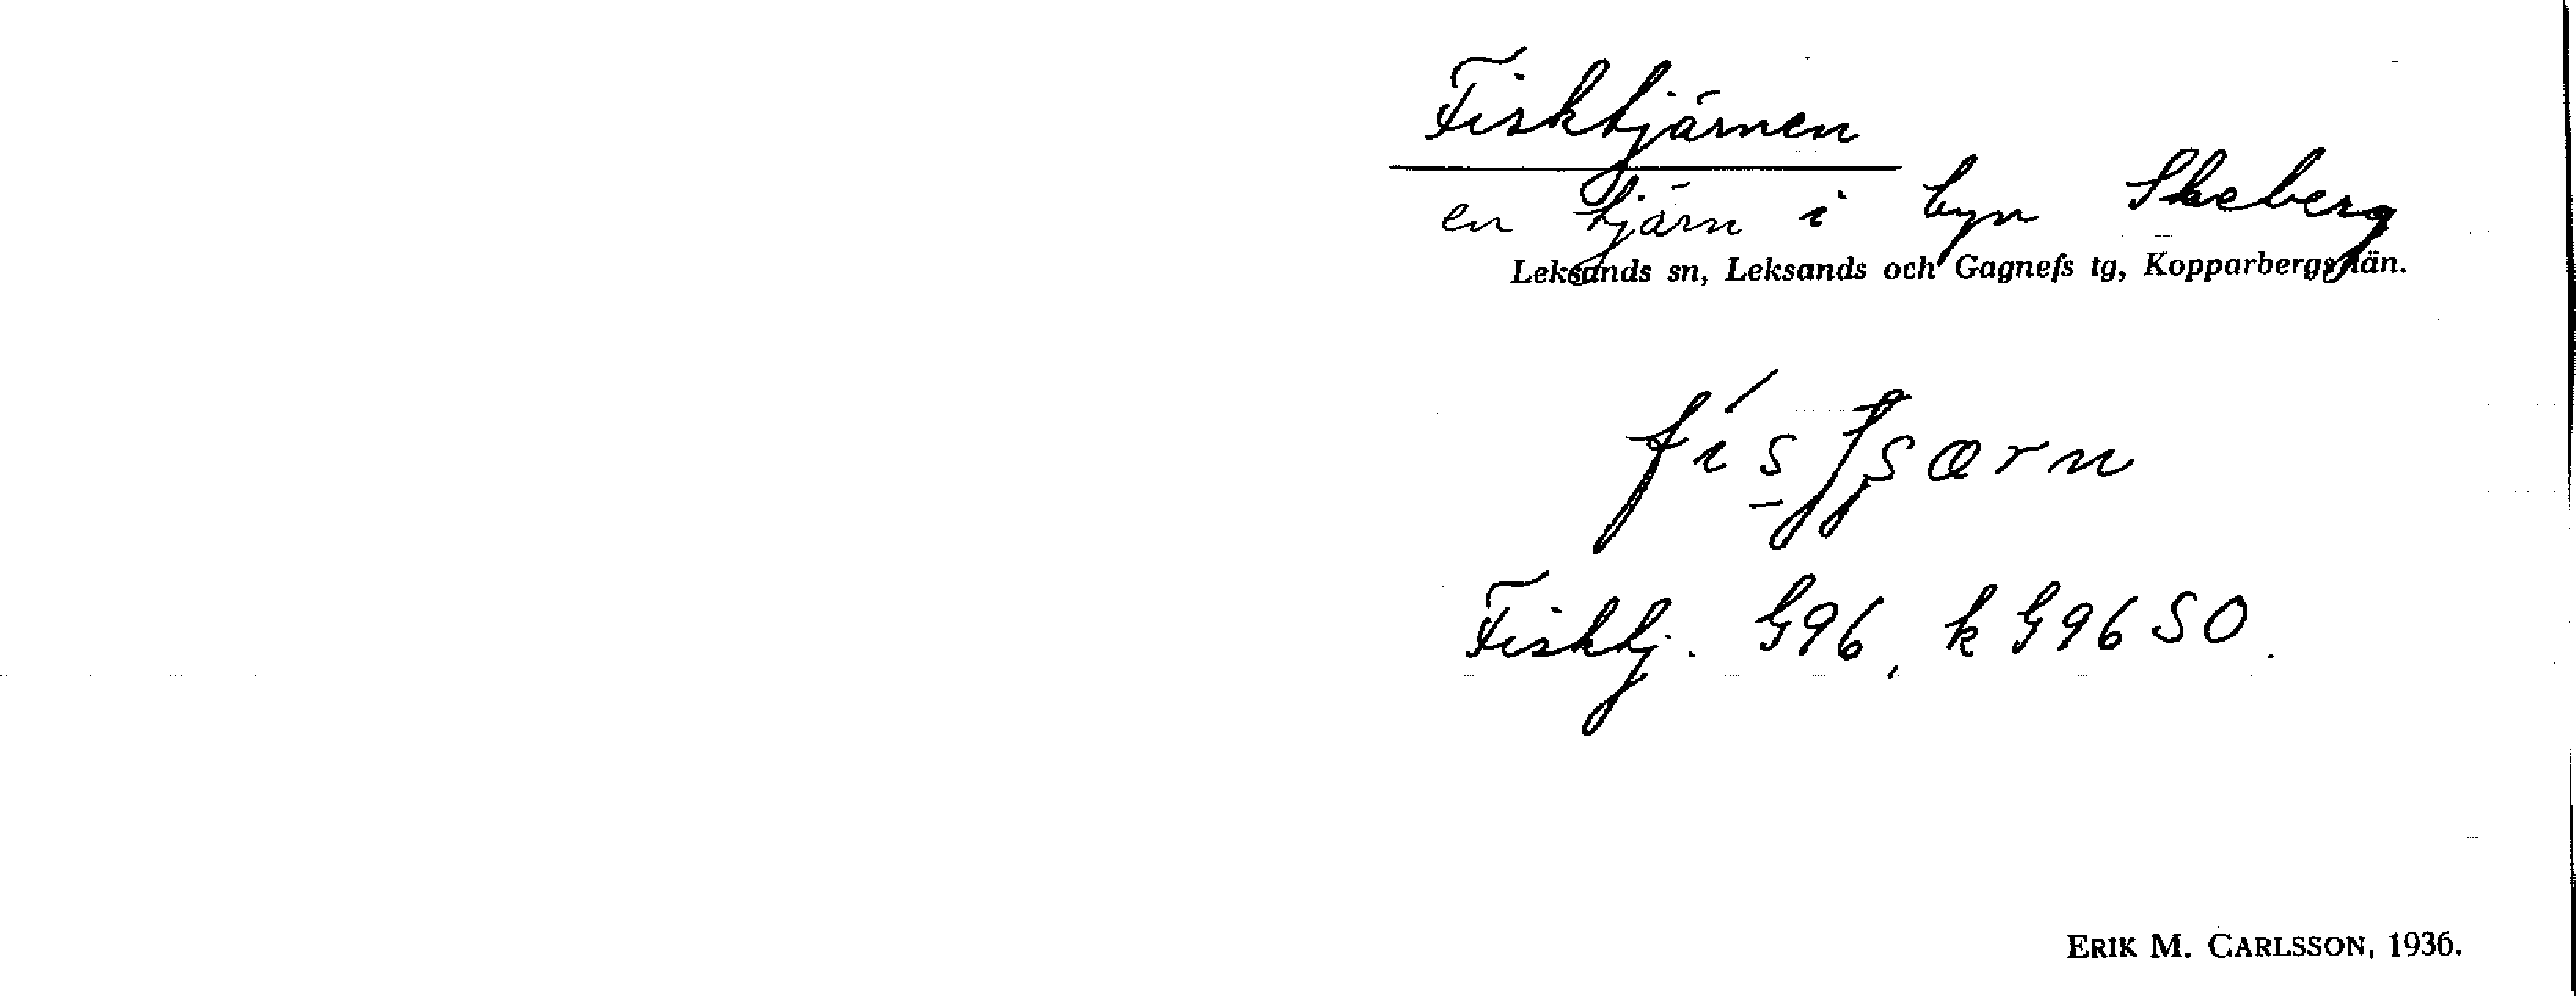 Fisktjärnen
en tjärn i byn Skeberg
Leksands sn, Leksands och Gagnefs tg, Kopparbergs län.
Fisktj. G96, k G96 SO.
ERIK M. CARLSSON, 1936.